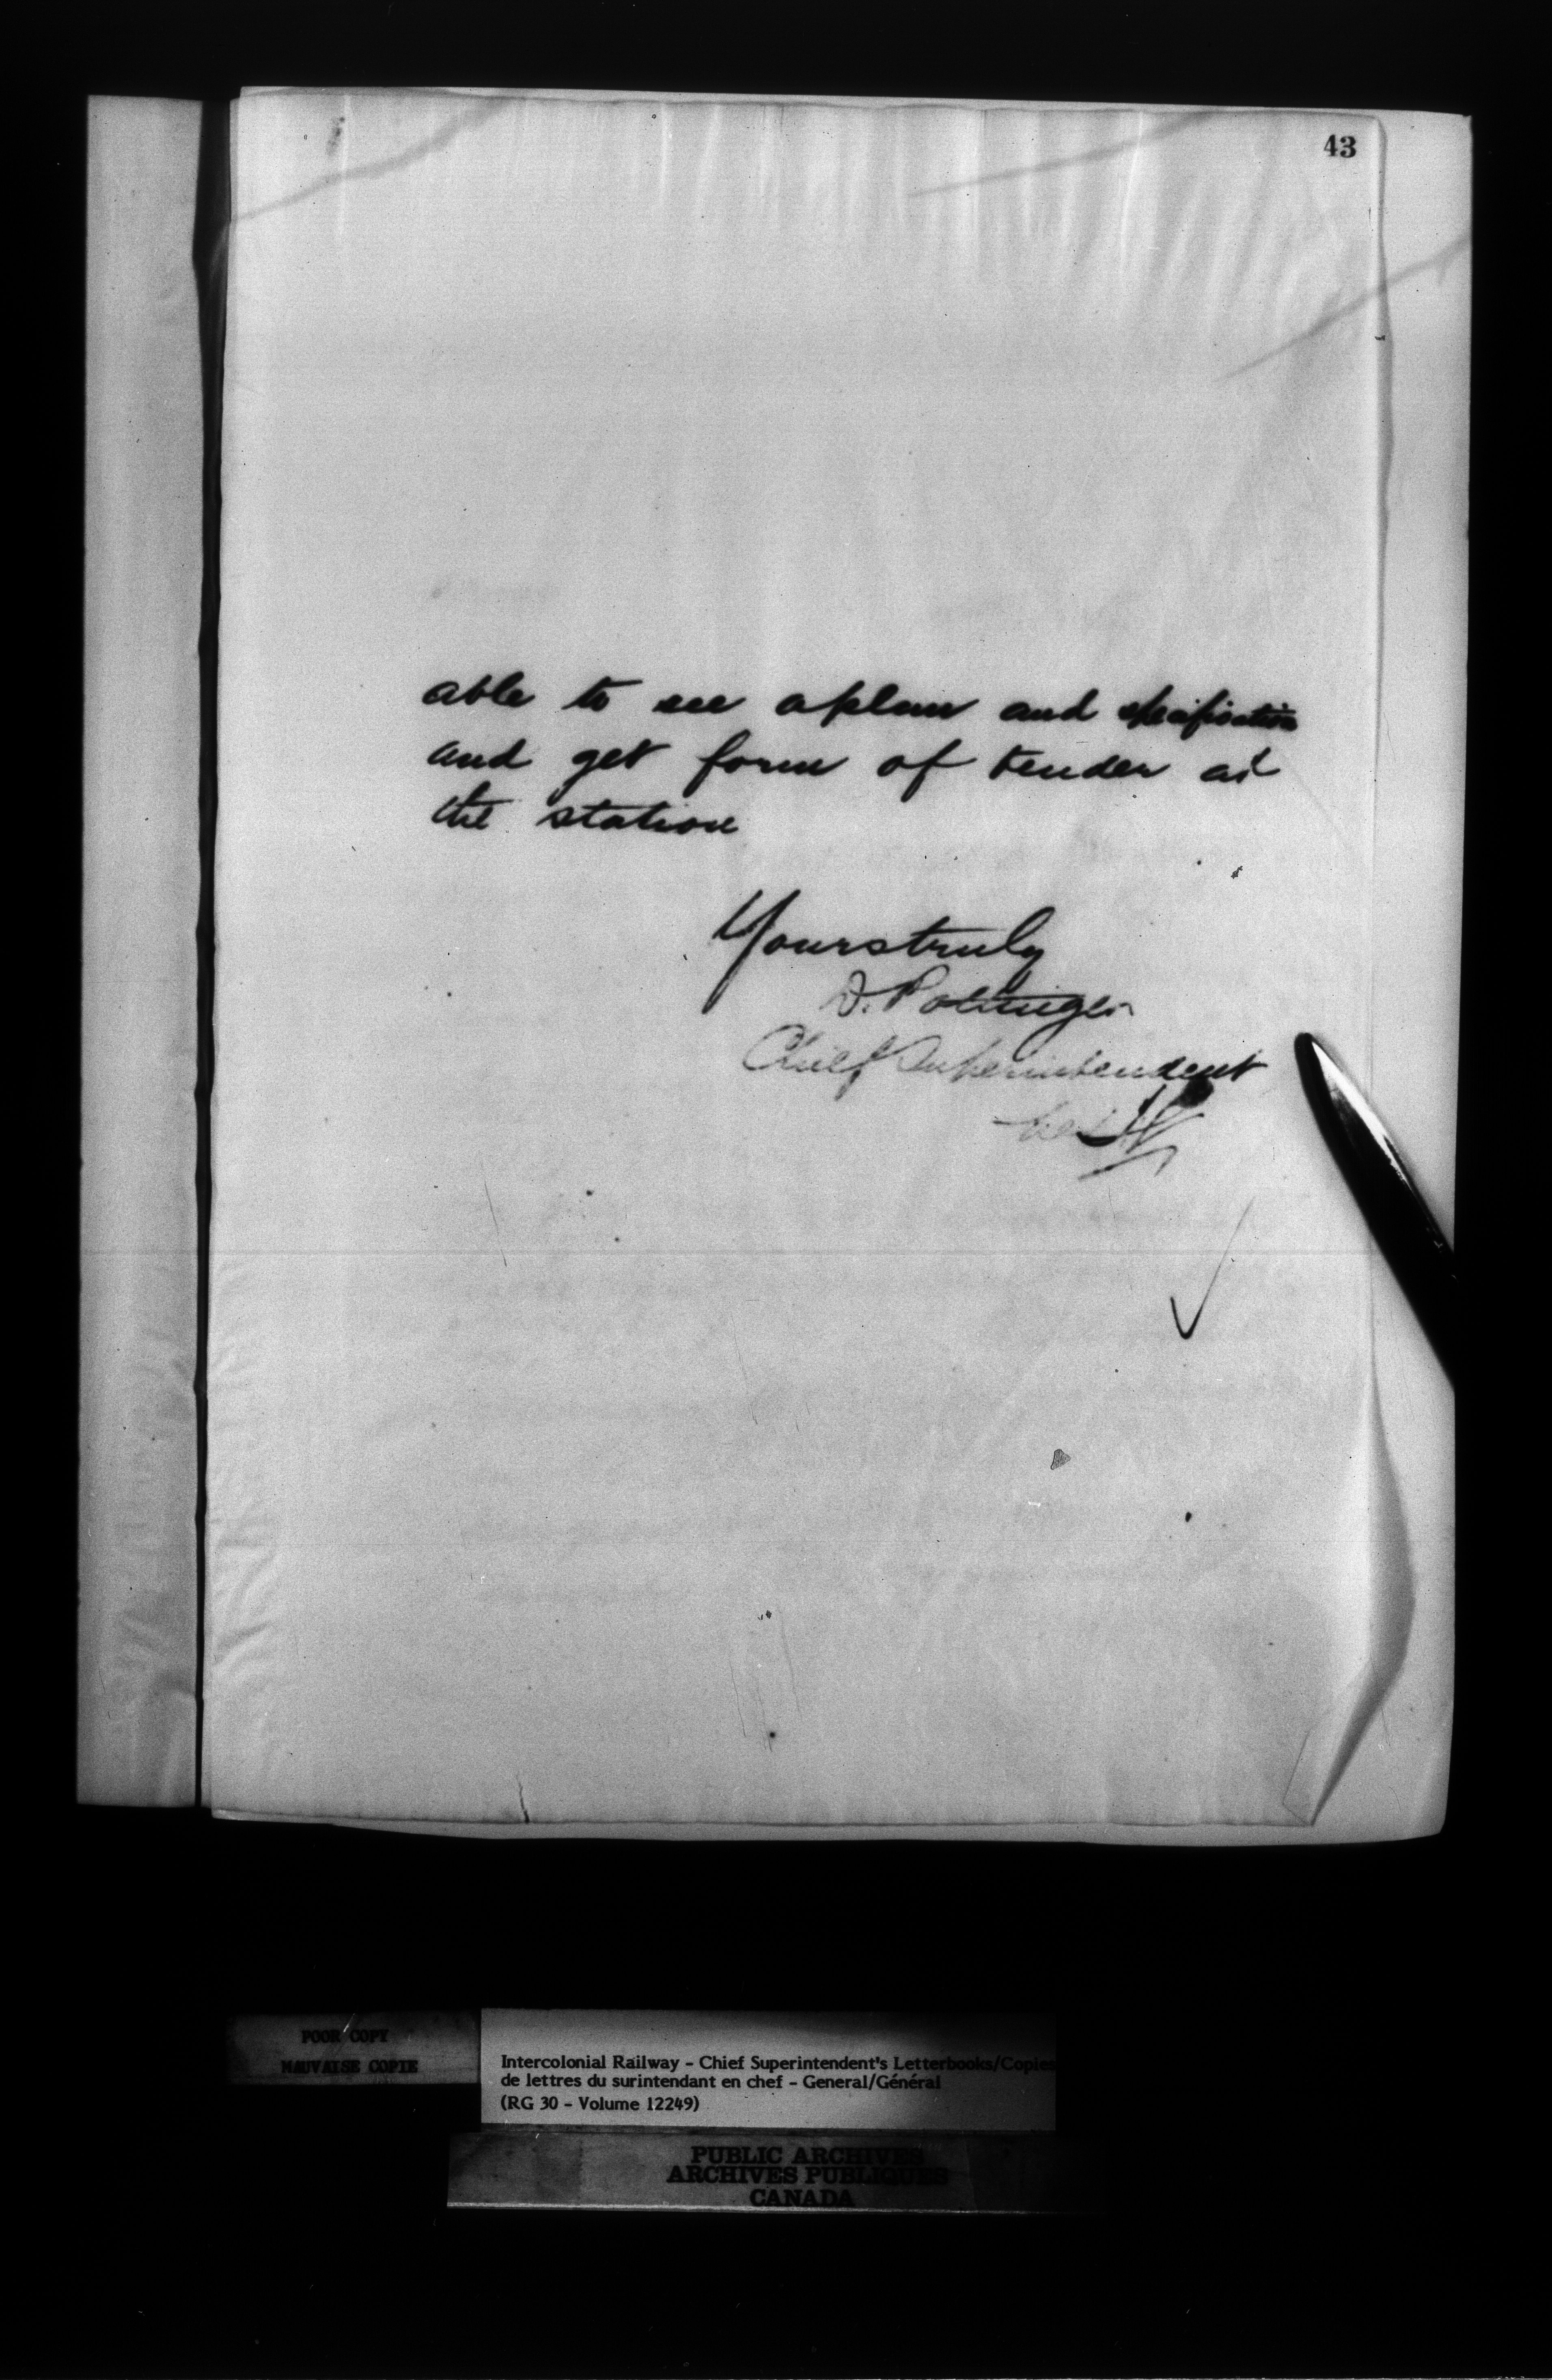 43
able to see a plan and specification
and get form of tender at
the station
Yours truly
D. Pottinger
Chief Superintendent
POOR COPY
MAUVAISE COPIE
Intercolonial Railway - Chief Superintendent's Letterbooks/Copies
de lettres du surintendant en chef - General/Général
(RG 30 - Volume 12249)
PUBLIC ARCHIVES
ARCHIVES PUBLIQUES
CANADA